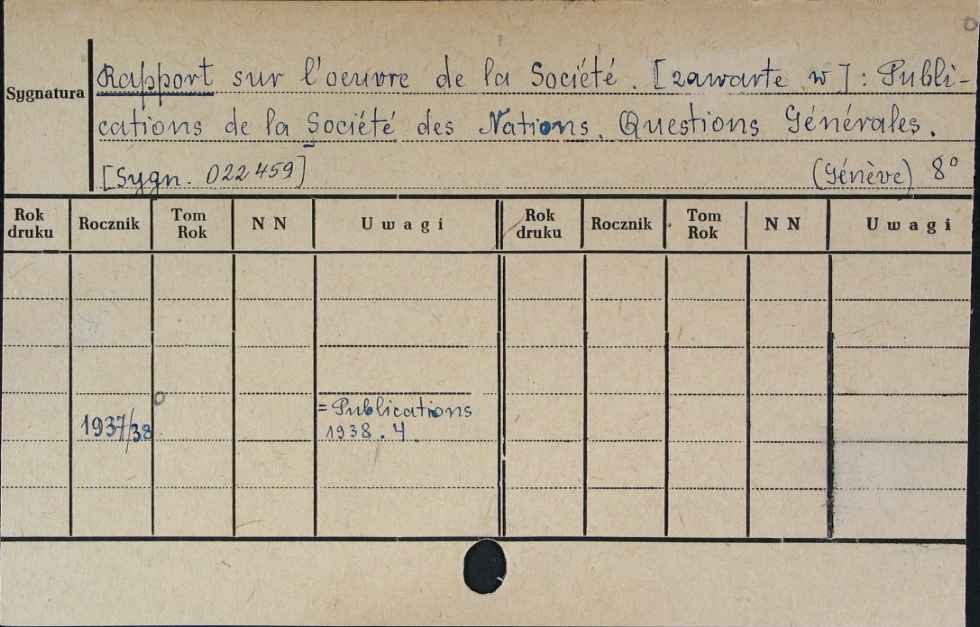 Sygnatura
Rapport sur l'oeuvre de la Société. [zawarte w]: Publi-
cations de la Société des Nations. Questions Générales.
[Sygn. 022459] (Génève) 8°
Rok druku Rocznik Tom Rok NN Uwagi Rok druku Rocznik Tom Rok NN Uwagi
= Publications
1937/38 1938. 4.